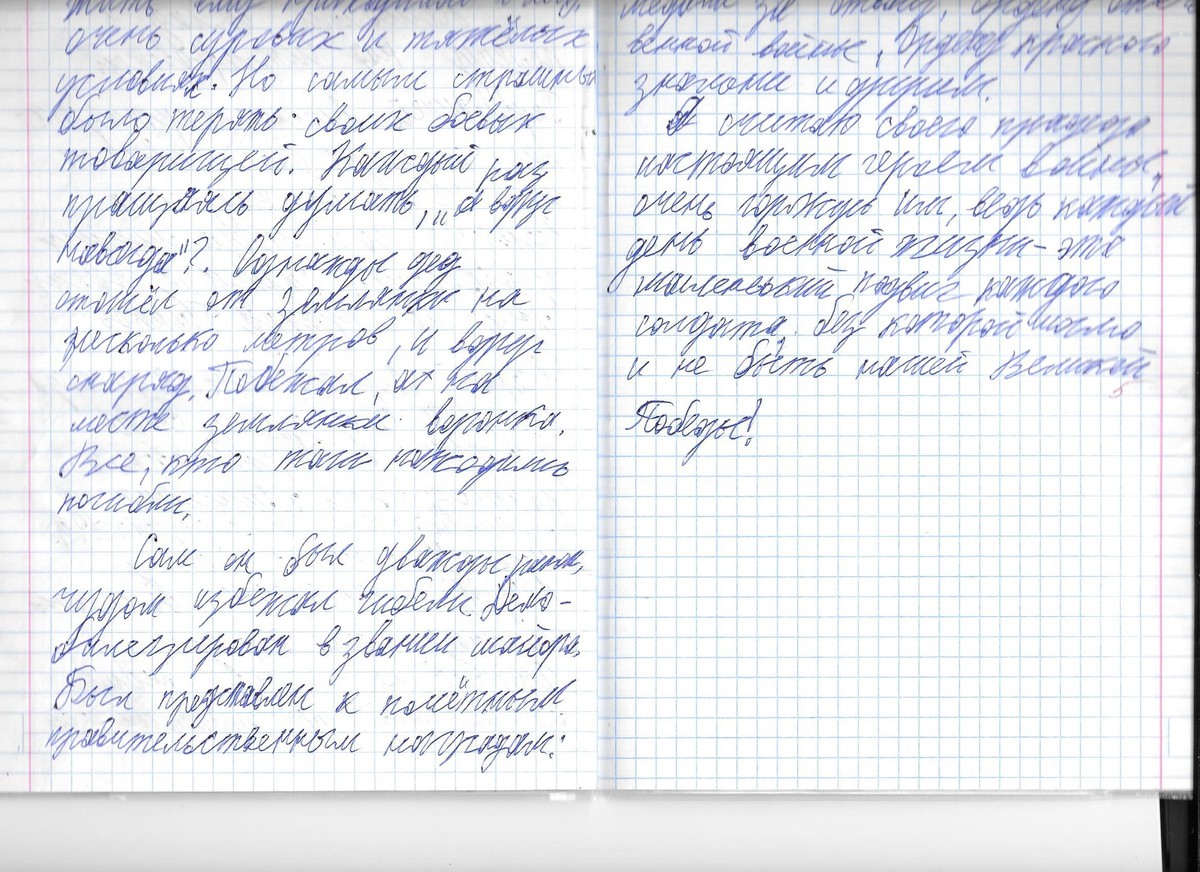 жить ему приходилось в
очень суровых и тяжёлых
условиях. Но самым страшным
было терять своих боевых
товарищей. Каждый раз
прощаясь думать, „а вдруг
навсегда"?. Однажды дед
отошёл от землянки на
несколько метров, и вдруг
снаряд. Побежал, а на
месте землянки воронка.
Все, кто там находились
погибли.
Сам он был дважды ранен,
чудом избежал гибели. Демо-
билизирован в звании майора.
Был представлен к почётным
правительственным наградам:
медали за отвагу, ордену оте-
венной войны, Ордену красного
знамени и другим.
Я считаю своего прадеда
настоящим героем войны,
очень горжусь им, ведь каждый
день военной жизни – это
маленький подвиг каждого
солдата, без которой могло
и не быть нашей Великой
Победы!